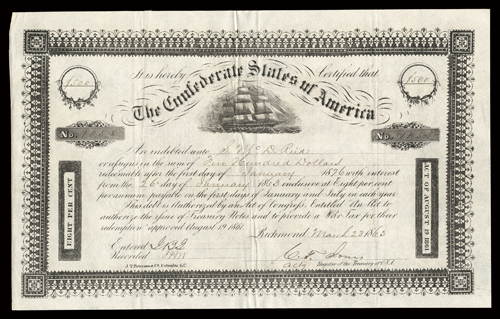 $500 $500
It is hereby Certified that
The Confederate States of America
No. No.
Are indebted unto
or assigns in the sum of Five Hundred Dollars
redeemable after the first day of January 1876 with interest
from the 26 day of January 1863 inclusive at Eight per cent
per annum payable on the first days of January and July in each year
This debt is authorized by an Act of Congress, Entitled An Act to
authorize the issue of Treasury Notes and to provide a War Tax for their
redemption approved August 19 1861.
Richmond March 23 1863
Entered
Recorded
Acty Register of the Treasury of C.S.A.
EIGHT PER CENT
ACT OF AUGUST 19 1861